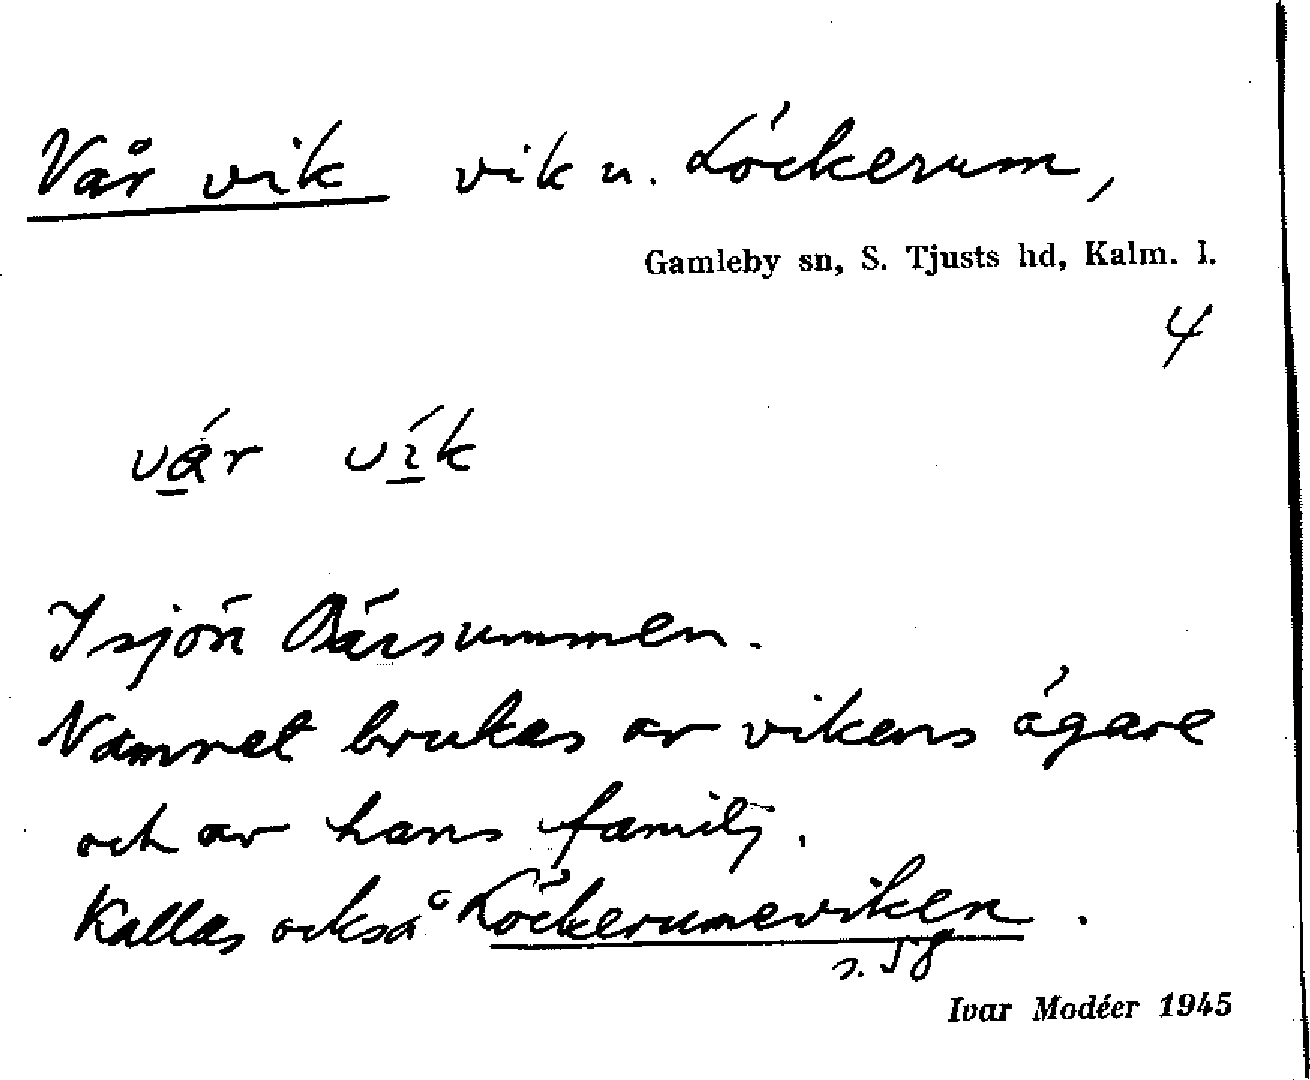 Vår vik vik u. Löckerum,
Gamleby sn, S. Tjusts hd, Kalm. l.
4
vár vík
I sjön Bärsummen.
Namnet brukas av vikens ägare
och av hans familj.
Kallas också Löckerumeviken.
s.
Ivar Modéer 1945